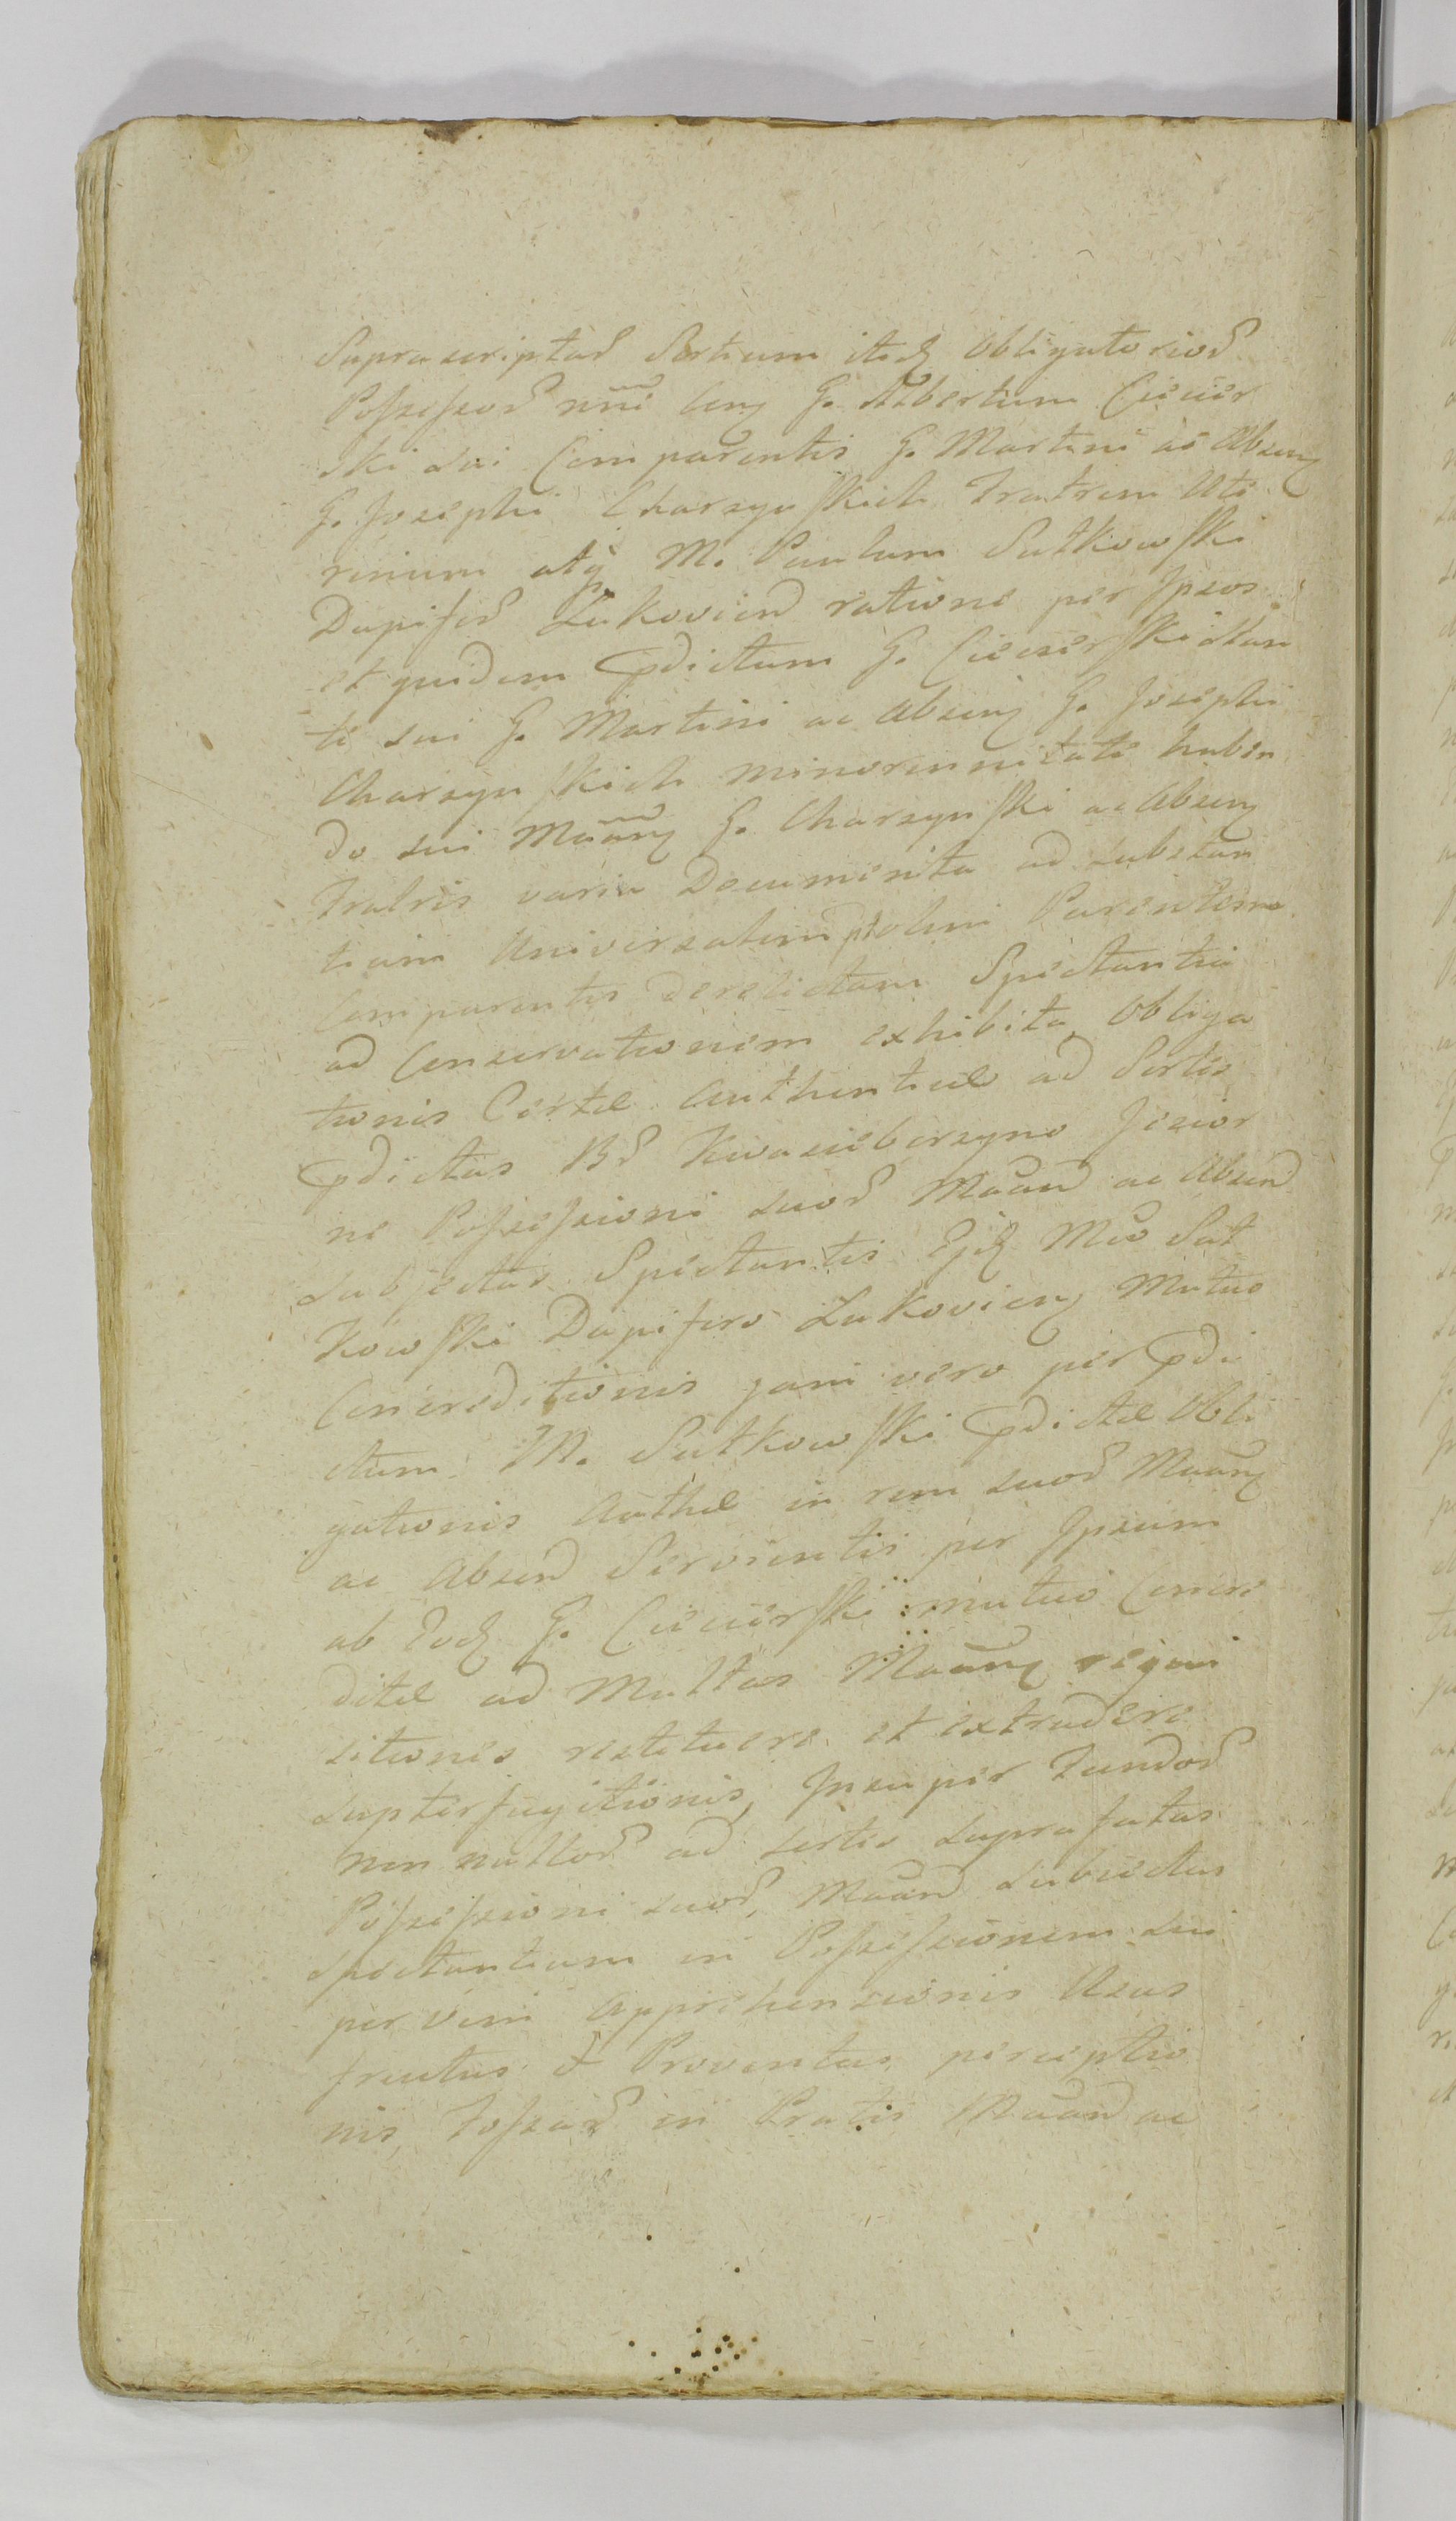 Supra scriptas Sortium itidẽ obligatorios
Possessores nunc leng G. Albertum Ciecier
ski sui Comparentis G. Martini ac Absen
G. Josephi Charzynskich Fratrem Ute
rinum atq M. Paulum Sutkowski
Dapifer Lukovien ratione per Ipsos
et quidem pdictum G. Ciecierski stan
te sui G. Martini ac Absen G. Josephi
Charzynskich minorennitate haben
do sui Maan G. Charzynski ac Absen
Fratris varia Documenta ad substan
tiam Universalem olim Parentem
Comparentis derelictam Spectantia
ad Conservationem exhibita, Obliga
tionis Certae Authenticae ad Sortes
pdictas Bs Kwasieborzyno Jezior
ne Possessioni suor Maan ac Absen
subjectas Spectantis Ejdẽ Mco Sut
kowski Dapifero Lukovien Mutuo
Concreditionis jam vero per pdi
ctum M. Sutkowski pdictae Obli
gationis Authae in rem suor Maan
ac Absen Servientis per Ipsum
ab Eodẽ G. Ciecierski mutuo Concre
ditae ad Multas Maan requi
sitiones restituere et extradere
supterfugitionis, Insuper Fundor
non nullor ad sortes suprafatas
Possessioni suor, Maan subiectas
spectantium in Possessionem sui
per vim Apprehensionis Usus
fructus & Proventus perceptio
nis, Fossar in Pratis Maan ac